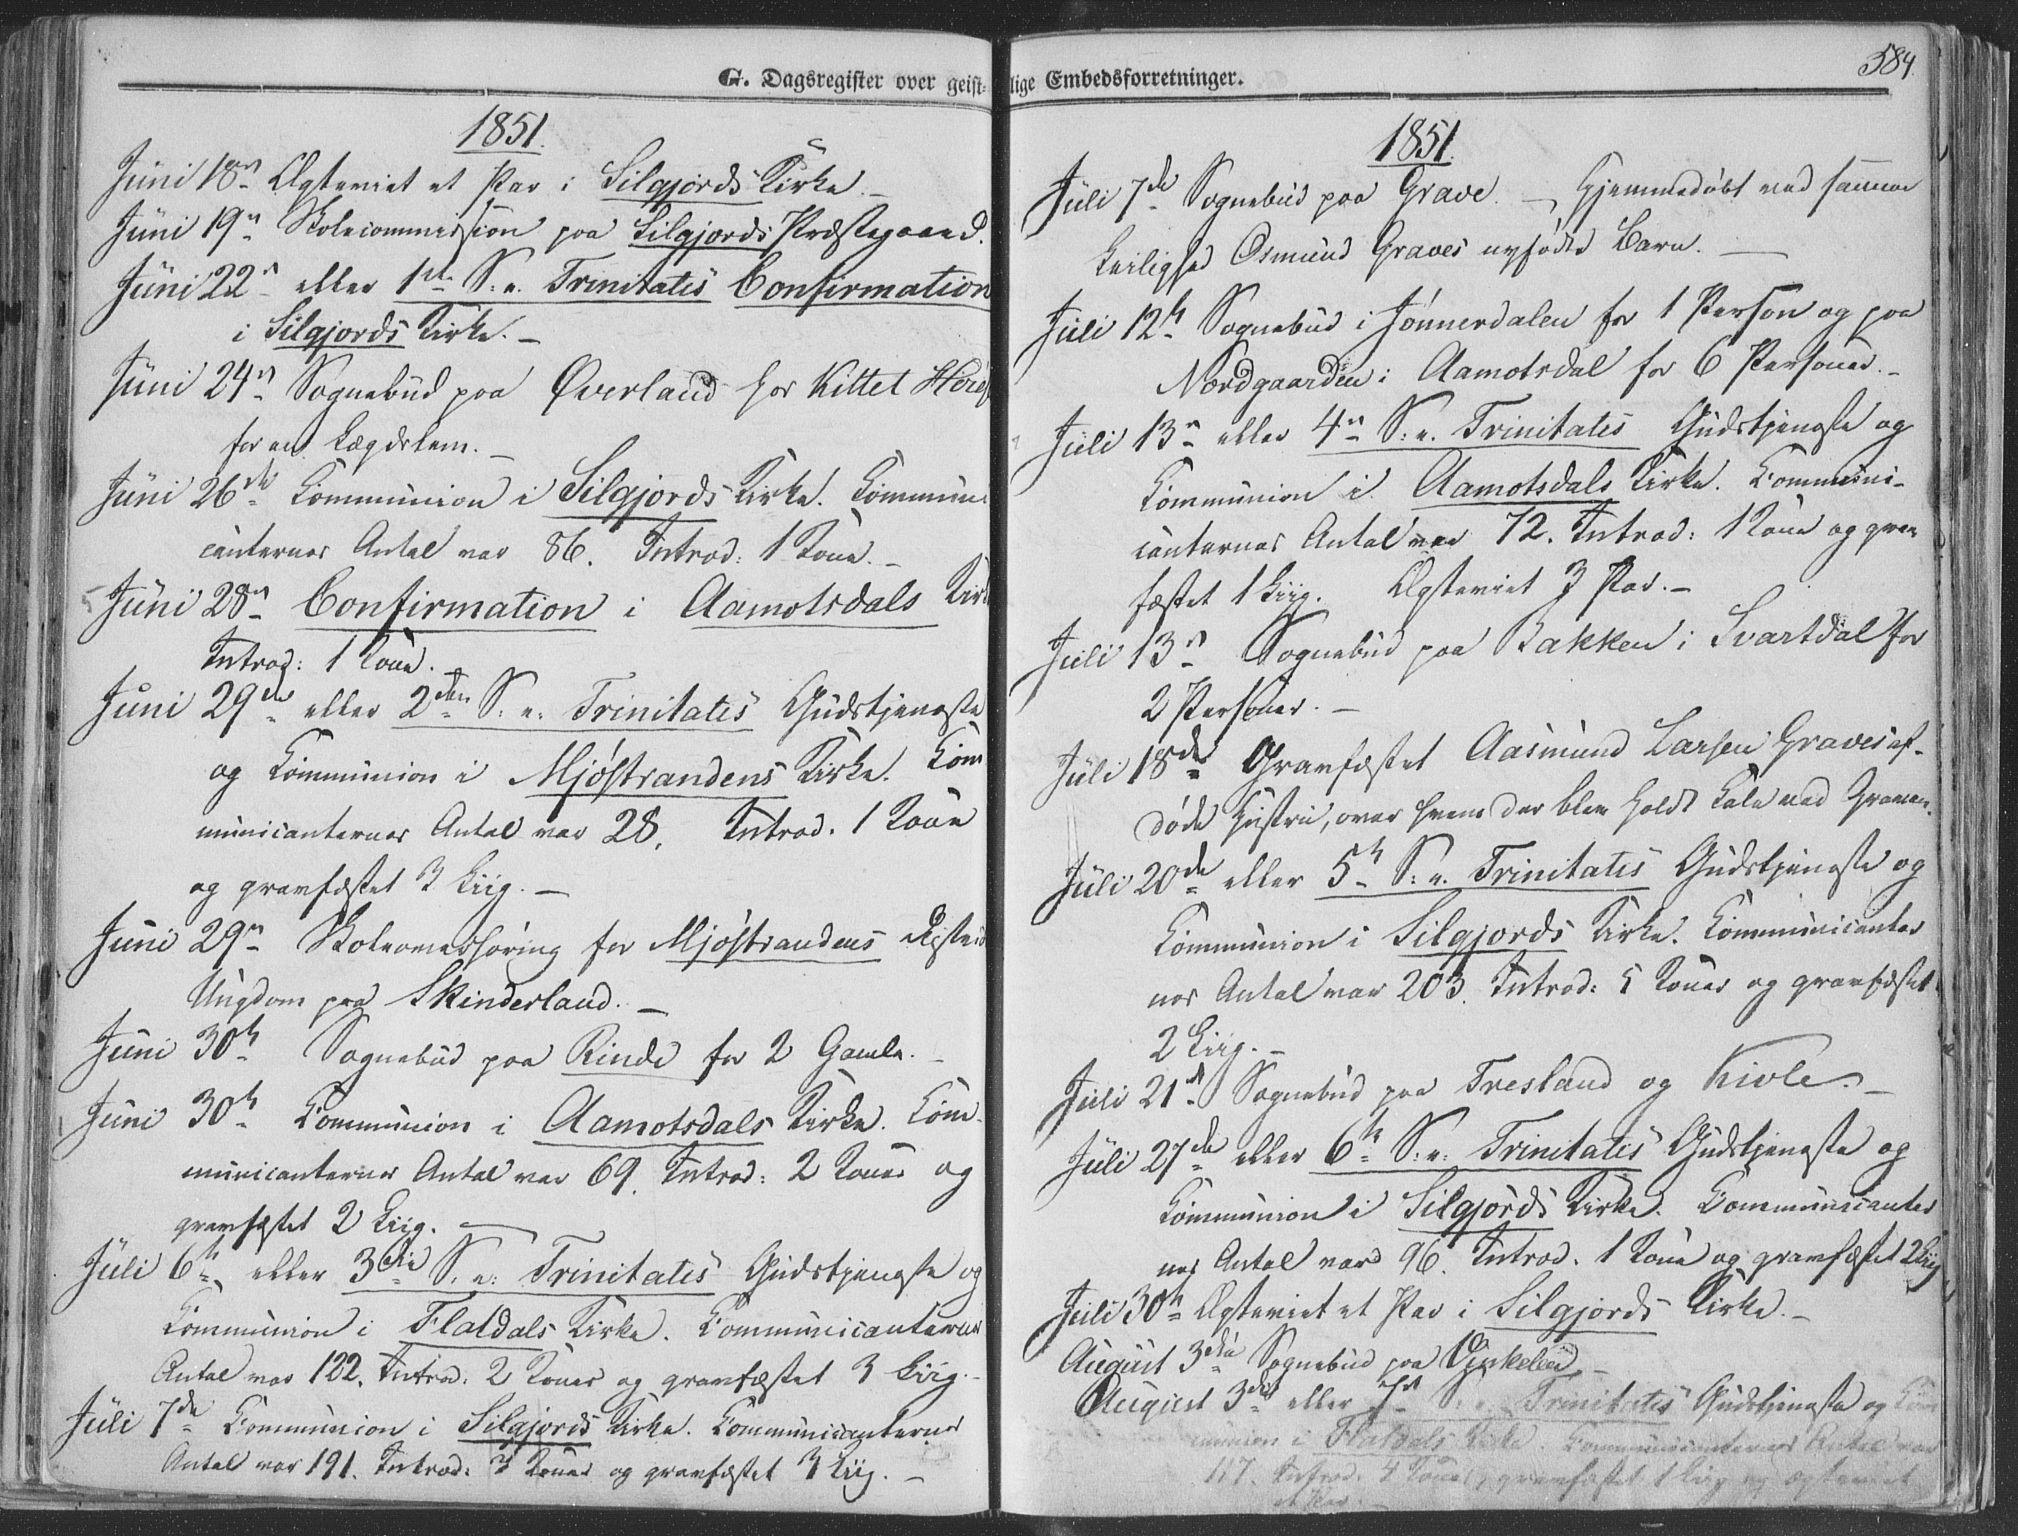 G. Dagsregister over geist-
1851.
Juni 18n Ægteviet et Par i Silgjords Kirke. –
Juni 19n Skolecommission paa Silgjords Præstegaard.
Juni 22n eller 1ste S. e. Trinitatis Confirmation
i Silgjords Kirke. –
Juni 24n Sognebud paa Øverland hos Kittel
for en Lægdslem. –
Juni 26de Communion i Silgjords Kirke. Communi
canternes Antal var 86. Introd: 1 Kone. –
Juni 28n Confirmation i Aamotsdals Kirke
Introd: 1 Kone.
Juni 29de eller 2den S. e. Trinitatis Gudstjeneste
og Communion i Mjøstrandens Kirke. Com
municanternes Antal var 28. Introd. 1 Kone
og gravfæstet 3 Liig. –
Juni 29n Skoleoverhøring for Mjøstrandens
Ungdom paa Skinderland. –
Juni 30te Sognebud paa Rinde for 2 Gamle. –
Juni 30te Communion i Aamotsdals Kirke. Com-
municanternes Antal var 69. Introd: 2 Koner og
gravfæstet 2 Liig. –
Juli 6te eller 3die S. e. Trinitatis Gudstjeneste og
Communion i Flatdals Kirke. Communicanternes
Antal var 122. Introd. 2 Koner og gravfæstet 3 Liig. –
Juli 7de Communion i Silgjords Kirke. Communicanternes
Antal var 191. Introd: 3 Koner og gravfæstet 3 Liig. –
lige Embedsforretninger.
584.
1851.
Juli 7de Sognebud paa Grave. – Hjemmedøbt ved samme
Leilighed Osmund Graves nyfødte Barn. –
Juli 12te Sognebud i Jønnerdalen for 1 Person og paa
Nordgaarden i Aamotsdal for 6 Personer. –
Juli 13n eller 4n S. e. Trinitatis Gudstjeneste og
Communion i Aamotsdals Kirke. Communi-
canternes Antal var 72. Introd: 1 Kone og grav
fæstet 1 Liig. Ægteviet 3 Par. –
Juli 13n Sognebud paa Bakken i Svartdal for
2 Personer. –
Juli 18de Gravfæstet Aasmund Larsen Graves af-
døde Hustru, over hvem der blev holdt Tale ved Graven.
Juli 20de eller 5te S. e. Trinitatis Gudstjeneste og
Communion i Silgjords Kirke. Communicanter
nes Antal var 203. Introd: 5 Koner og gravfæstet
2 Liig. –
Juli 21n Sognebud paa Tresland og Kivle. –
Juli 27de eller 6te S. e. Trinitatis Gudstjeneste og
Communion i Silgjords Kirke. Communicanter
nes Antal var 96. Introd. 1 Kone og gravfæstet 2 Liig
Juli 30te Ægteviet et Par i Silgjords Kirke. –
August 3die Sognebud paa Vinkelen –
August 3die eller 7n S. e. Trinitatis Gudstjeneste og Com
munion i Flatdals Kirke Communicanternes Antal var
117. Introd. 4 Koner, gravfæstet 1 Liig og ægteviet
et Par. –